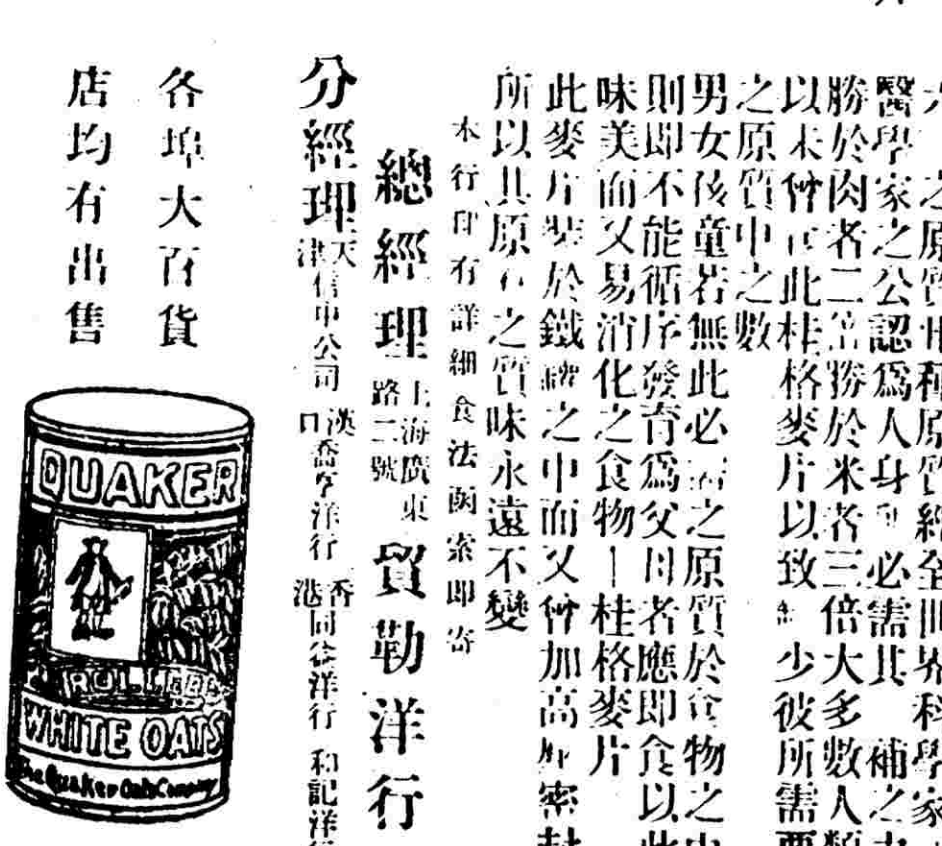 之原質卅種原質經全世界科學家
醫學家之公認爲人身必需其補之力
勝於肉者二倍勝於米者三倍大多數人類
以未曾食此桂格麥片以致缺少彼所需要
之原質中之數
男女孩童若無此必需之原質於食物之中
則即不能循序發育爲父母者應即食以此
味美而又易消化之食物—桂格麥片
此麥片裝於鐵罐之中而又曾加高壓密封
所以其原有之質味永遠不變
本行印有詳細食法函索即寄
總經理 上海廣東路二號 貿勒洋行
分經理 天津信中公司 漢口喬亨洋行 香港同益洋行 和記洋行
各埠大百貨
店均有出售
QUAKER
ROLLED
WHITE OATS
The Quaker Oats Company